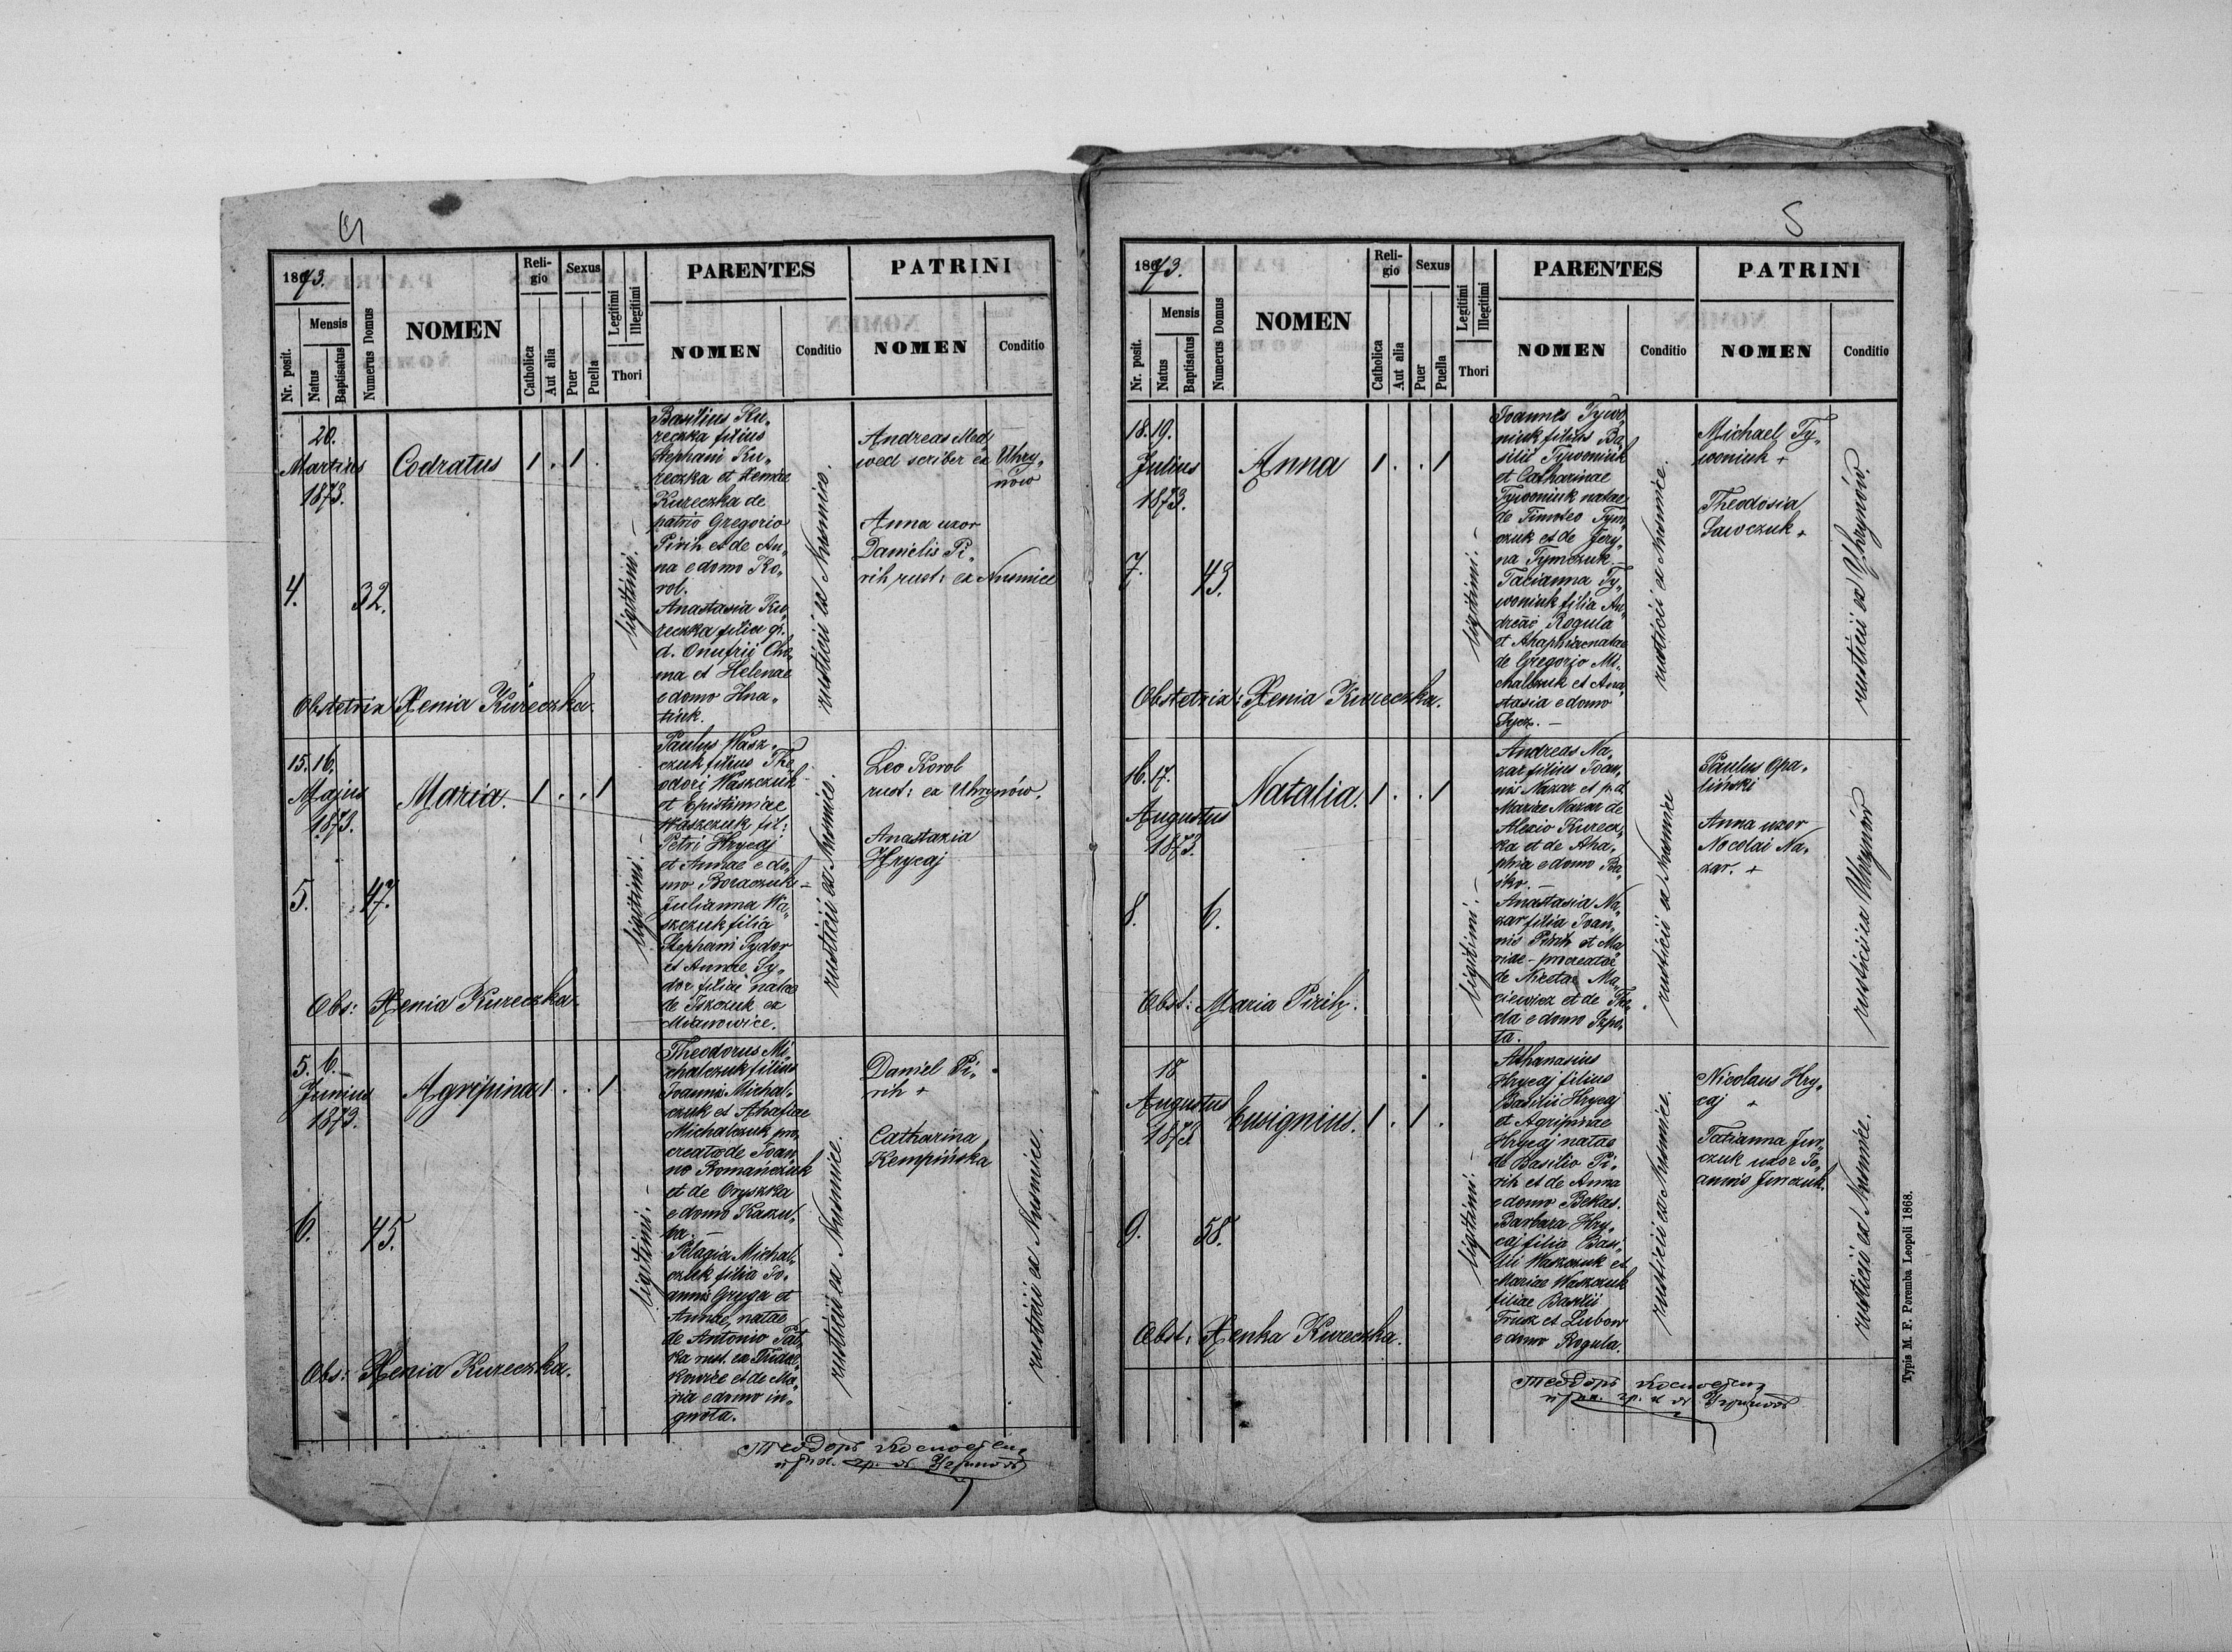 4
1873.
Nr. posit.
Mensis
Natus
Baptisatus
Numerus Domus
NOMEN
Religio
Catholica
Aut alia
Sexus
Puer
Puella
Legitimi
Illegitimi
Thori
PARENTES
NOMEN
Conditio
PATRINI
NOMEN
Conditio
4.
20.
Martius
1873.
32.
Codratus
1 . 1 .
ligitimi. –
Basilius Ku„
reczka filius
Stephani Ku„
reczka et Xeniae
Kureczka de
patrio Gregorio
Pirih et de An„
na e domo Ko„
rol.
Anastasia Ku„
reczka filia
d. Onufrii Cho„
ma et Helenae
e domo Hna„
tiuk.
rusticii ex Nusmice.
Andreas Med„
wed scriber ex Uhry„
nów
Anna uxor
Danielis Pi„
rih rust: ex Nusmice
Obstetrix Xenia Kureczka.
5.
15. 16.
Majus
1873.
47.
Maria.
1 . . 1
ligitimi. –
Paulus Wasz„
czuk filius The„
odori Waszczuk
et Epistimiae
Waszczuk fil:
Petri Hrycaj
et Annae e do„
mo Boraczuk –
Julianna Wa„
szczuk filia
Stephani Sydor
et Annae Sy„
dor filiae natae
de Iszczuk ex
Mianowice.
rusticii ex Nusmice.
Leo Korol
rust: ex Uhrynów.
Anastazia
Hrycaj
Obs: Xenia Kureczka.
6.
5. 6.
Junius
1873.
45.
Agripina
1 . . 1
ligitimi. –
Theodorus Mi„
chalczuk filius
Joannis Michal„
czuk et Ahafiae
Michalczuk pro„
creatae de Joan„
no Romańczuk
et de Oryszka
e domo Kaszu„
ba. –
Pelagia Michal„
czuk filia Jo„
annis Gryga et
Annae, natae
de Antonio Pat„
ka rust. ex
kowice et de Ma„
ria e domo in„
gnota.
rusticii ex Nusmice.
Daniel Pi„
rih +
Catharina
Kempińska
rusticii ex Nusmice.
Obs: Xenia Kureczka.
Теодоръ
5
1873.
Nr. posit.
Mensis
Natus
Baptisatus
Numerus Domus
NOMEN
Religio
Catholica
Aut alia
Sexus
Puer
Puella
Legitimi
Illegitimi
Thori
PARENTES
NOMEN
Conditio
PATRINI
NOMEN
Conditio
7.
18. 19.
Julius
1873.
43.
Anna
1 . . 1
ligitimi. –
Joannes Tywo„
niuk filius Ba„
silii Tywoniuk
et Catharinae
Tywoniuk natae
de Timoteo Tym„
czuk et de Jery„
na Tymczuk. –
Tacianna Ty„
woniuk filia An„
dreae Rogula
et Ahaphiae natae
de Gregorio Mi„
chalczuk et Ana„
stasia e domo
Sycz. –
rusticii ex Nusmice.
Michael Ty„
woniuk +
Theodosia
Sawczuk +
rusticii ex Uhrynów.
Obstetrix: Xenia Kureczka.
8.
16. 17.
Augustus
1873.
6.
Natalia.
1 . . 1
ligitimi. –
Andreas Na„
zar filius Joan„
nis Nazar et p.d.
Mariae Nazar de
Alexio Kurecz„
ka et de Aha„
phia e domo Ba„
jko. –
Anastasia Na„
zar filia Joan„
nis Pirih et Ma„
riae – procreatae
de Nicetae Ma„
ciewicz et de The„
cla e domo Szpo„
ta.
rusticii ex Nusmice
Paulus Opa„
liński
Anna uxor
Nocolai Na„
zar. +
rusticii ex Uhrynów
Obst: Maria Pirih.
9.
18
Augustus
1873
58.
Eusignius.
1 . 1 .
ligitimi. –
Athanasius
Hrycaj filius
Basilii Hrycaj
et Agripinae
Hrycaj natae
de Basilio Pi„
rih et de Anna
e domo Bekas.
Barbara Hry„
caj filia Basi„
lii Waszczuk et
Mariae Waszczuk
filiae Basilii
Trusz et Lubow
e domo Rogula.
rusticii ex Nusmice.
Nicolaus Hry„
caj +
Tatianna Jur„
czuk uxor Jo„
annis Jurczuk.
rusticii ex Nusmice.
Obst: Xenka Kureczka.
Теодоръ
Typis M. F. Poremba Leopoli 1868.